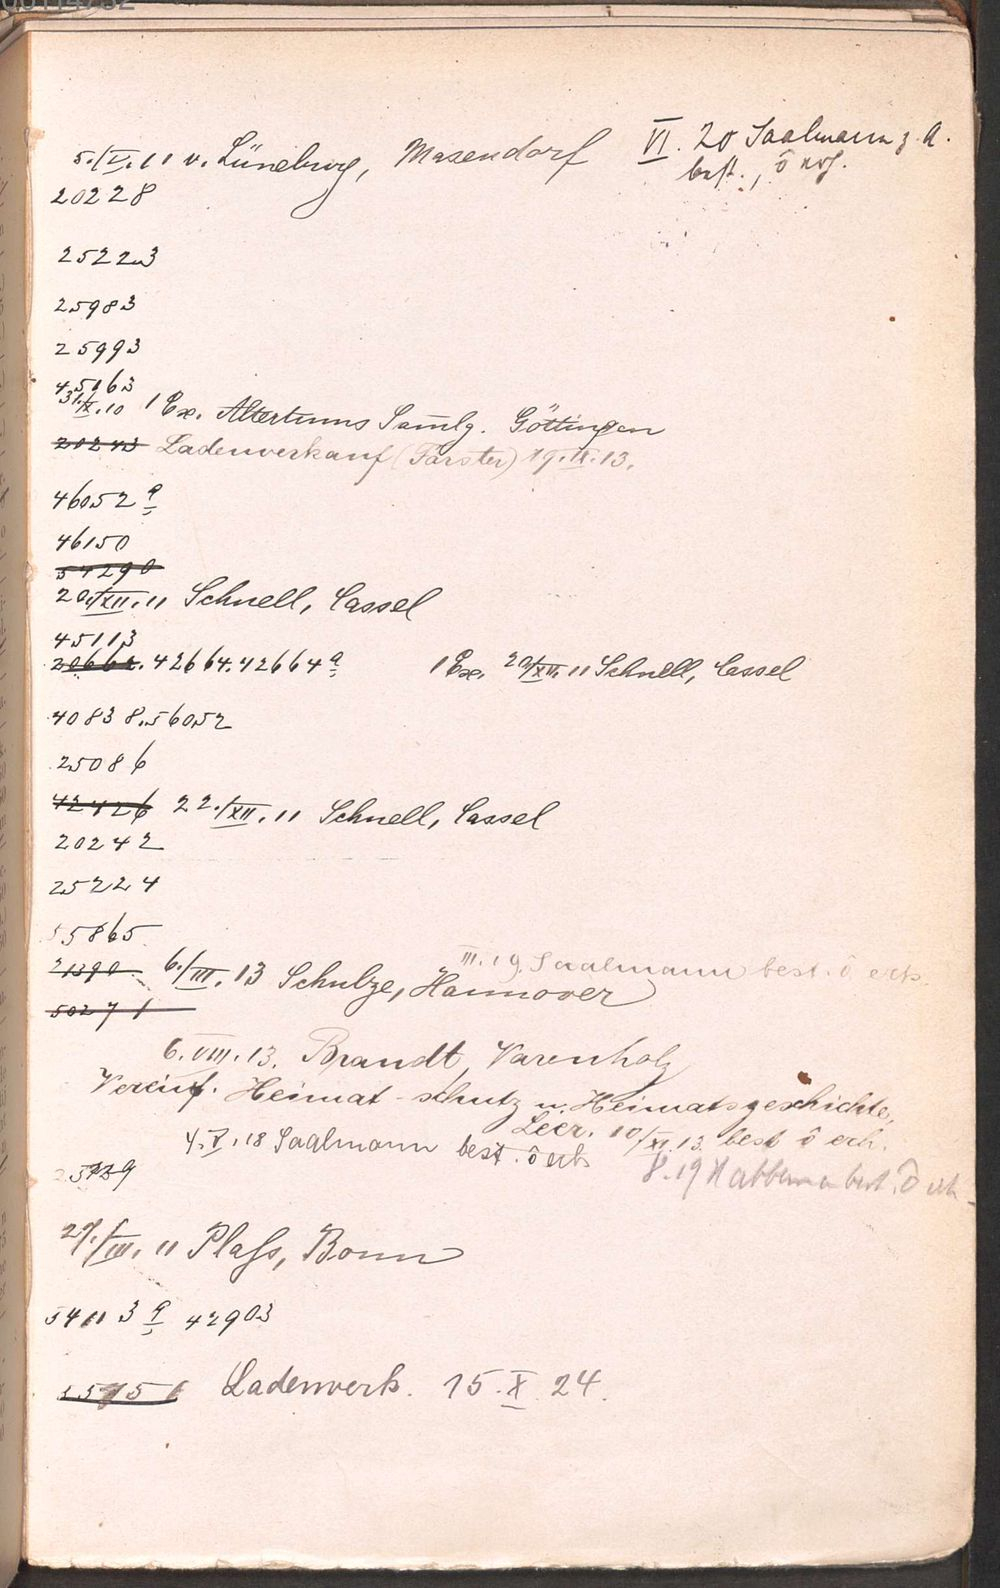 5./V.11 v. Lüneburg, Masendorf VI. 20 Saalmann z. A.
best., ō erh.
20228
25223
25983
25993
45163
31./X.10 1 Ex. Altertums Samlg. Göttingen
20243 Ladenverkauf (Förster) 19.IX.13.
46052 a
46150
54290
20./XII.11 Schnell, Cassel
45113
20662. 42664. 42664 a 1 Ex. 20/XII.11 Schnell, Cassel
40838. 56052
25086
42426 22./XII.11 Schnell, Cassel
20242
25224
55865
III. 19. Saalmann best. ō erh.
21390 6./III.13 Schulze, Hannover
50271
6. VIII. 13. Brandt, Varenholz
Verein f. Heimat-schutz u. Heimatsgeschichte,
Leer. 10/XI.13 best ō erh.
4.V.18 Saalmann best. ō erh
8.19 best. ō erh
29./III.11 Plass, Bonn
54113 a 42903
Ladenverk. 15. X 24.